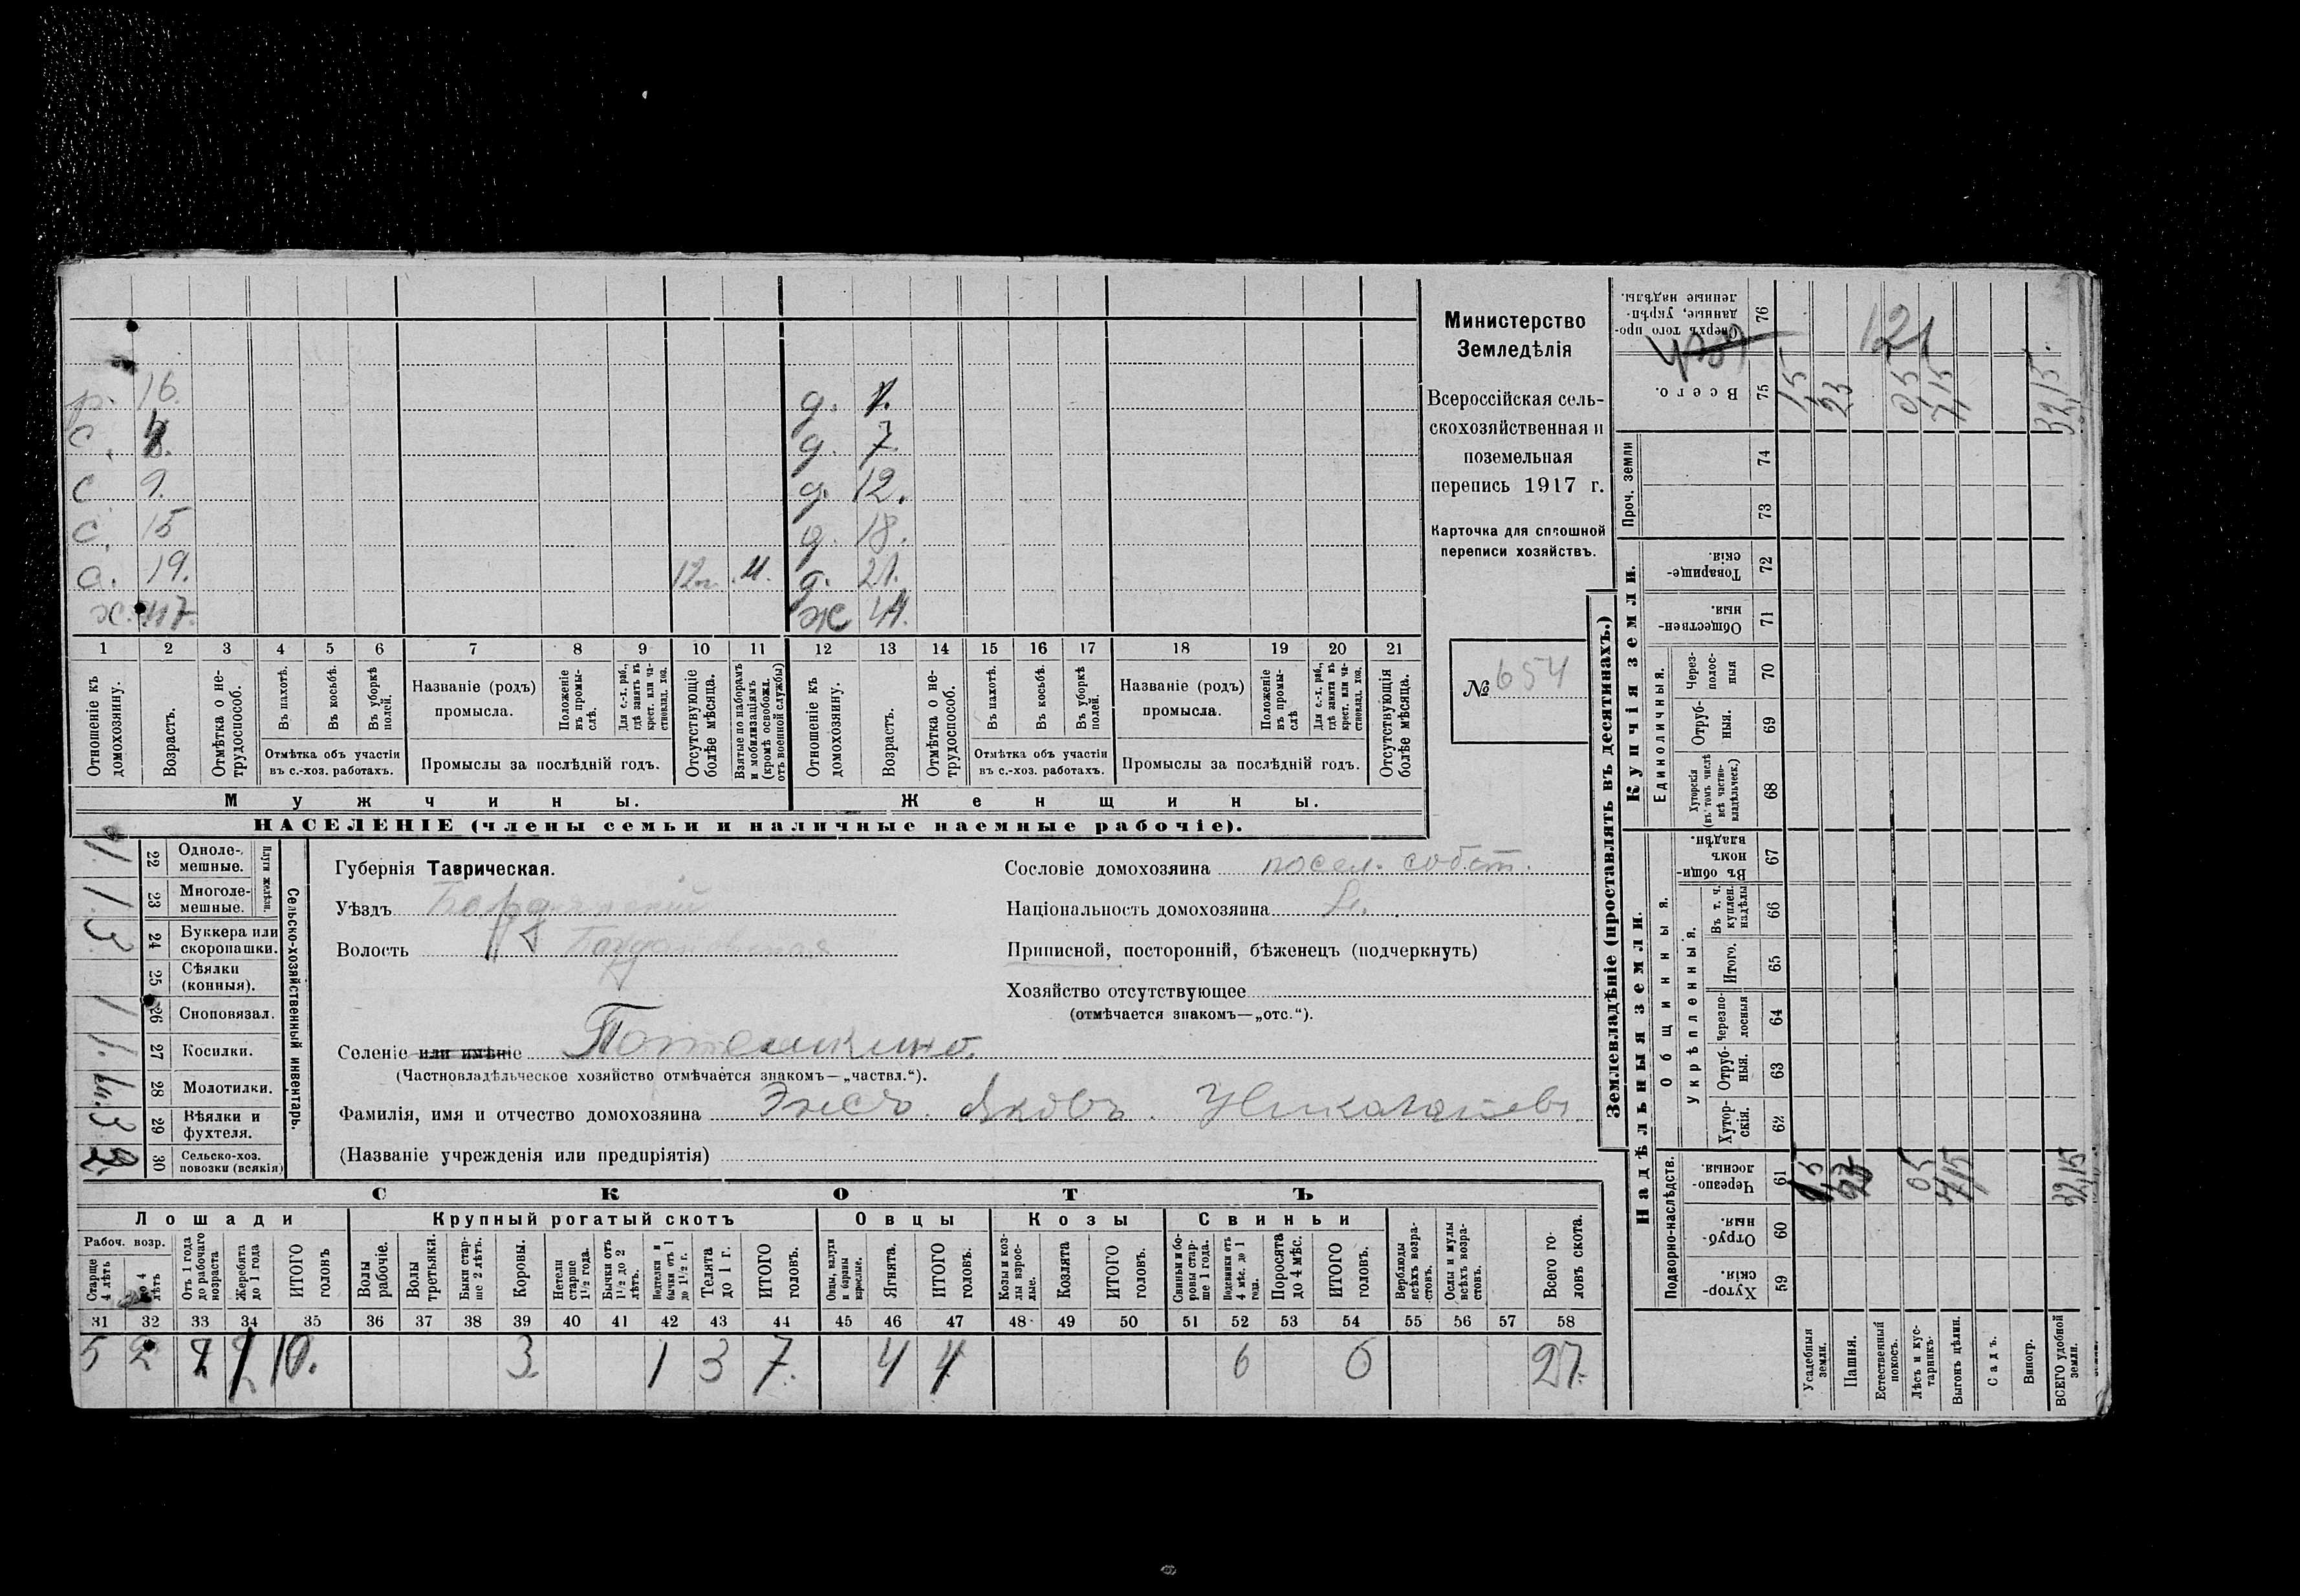 р. 16. д. 1.
с. д. 7.
с 9. д. 12.
с. 15 д. 18.
с. 19. д. 21.
х. 47. ж 44.
1 2 3 4 5 6 7 8 9 10 11 12 13 14 15 16 17 18 19 20 21
Отношеніе къ домохозяину.
Возрастъ.
Отмѣтка о не-трудоспособ.
Въ пахотѣ.
Въ косьбѣ.
Въ уборкѣ полей.
Отмѣтка объ участіи въ с.-хоз. работахъ.
Названіе (родъ) промысла.
Положеніе въ промы-слѣ.
Для с.-х. раб., гдѣ занятъ въ крест. или ча-стновлад. хоз.
Промыслы за послѣдній годъ.
Отсутствующіе болѣе мѣсяца.
Взятые по наборамъ и мобилизаціямъ (кромѣ освобожд. отъ военной службы)
Отношеніе къ домохозяину.
Возрастъ.
Отмѣтка о не-трудоспособ.
Въ пахотѣ.
Въ косьбѣ.
Въ уборкѣ полей.
Отмѣтка объ участіи въ с.-хоз. работахъ.
Названіе (родъ) промысла.
Положеніе въ промы-слѣ
Для с.-х. раб., гдѣ занята въ крест. или ча-стновлад. хоз.
Промыслы за послѣдній годъ.
Отсутствующія болѣе мѣсяца.
Мужчины.
Женщины.
НАСЕЛЕНІЕ (члены семьи и наличные наемные рабочіе).
Министерство
Земледѣлія
Всероссійская сель-
скохозяйственная и
поземельная
перепись 1917 г.
Карточка для сплошной
переписи хозяйствъ.
№ 654
Губернія Таврическая.
Уѣздъ Бердянскій
Волость Богдановская
Селеніе или имѣніе Потемкино.
(Частновладѣльческое хозяйство отмѣчается знакомъ—„частвл.“).
Фамилія, имя и отчество домохозяина Энсъ. Яковъ.
(Названіе учрежденія или предпріятія)
Сословіе домохозяина посел. собст.
Національность домохозяина
Приписной, посторонній, бѣженецъ (подчеркнуть)
Хозяйство отсутствующее
(отмѣчается знакомъ—„отс.“).
Сельско-хозяйственный инвентарь.
Плуги желѣзн.
22 Одноле-мешные. 1
23 Многоле-мешные. 1
24 Буккера или скоропашки. 3
25 Сѣялки (конныя).
26 Сноповязал. 1
27 Косилки. 1.
28 Молотилки.
29 Вѣялки и фухтеля. 3
30 Сельско-хоз. повозки (всякія) 2.
СКОТЪ
Лошади
Рабоч. возр.
Старше 4 лѣтъ
До 4 лѣтъ
Отъ 1 года до рабочаго возраста
Жеребята до 1 года
ИТОГО головъ
Крупный рогатый скотъ
Волы рабочіе.
Волы третьяки.
Быки стар-ше 2 лѣтъ.
Коровы.
Нетели старше 1½ года.
Бычки отъ 1½ до 2 лѣтъ.
Подтелки и бычки отъ 1 до 1½ г.
Телята до 1 г.
ИТОГО головъ.
Овцы
Овцы, валухи и бараны взрослые.
Ягнята.
ИТОГО головъ.
Козы
Козы и коз-лы взрос-лые.
Козлята
ИТОГО головъ.
Свиньи
Свиньи и бо-ровы стар-ше 1 года.
Подсвинки отъ 4 мѣс. до 1 года.
Поросята до 4 мѣс.
ИТОГО головъ.
Верблюды всѣхъ возра-стовъ.
Ослы и мулы всѣхъ возра-стовъ.
Всего го-ловъ скота.
31 32 33 34 35 36 37 38 39 40 41 42 43 44 45 46 47 48 49 50 51 52 53 54 55 56 57 58
5 2 10. 3. 1 3 7. 4 4 6 6 27.
Землевладѣніе (проставлять въ десятинахъ.)
Надѣльныя земли.
Подворно-наслѣдств.
Хутор-скія. 59
Отруб-ныя. 60
Черезпо-лосныя. 61
Общинныя.
Укрѣпленныя.
Хутор-скія. 62
Отруб-ныя. 63
Черезпо-лосныя 64
Итого. 65
Въ т. ч. куплен. надѣлы 66
Въ общи-номъ владѣн. 67
Купчія земли.
Единоличныя.
Хуторскія (въ томъ числѣ всѣ частно-владѣльческ.) 68
Отруб-ныя. 69
Через-полос-ныя 70
Обществен-ныя. 71
Товарище-скія. 72
Проч. земли
73 74
Всего. 75
Сверхъ того про-данные, укрѣп-ленные надѣлы. 76
121
Усадебныя земли. 1,5 1,5
Пашня. 23 23
Естественный покосъ.
Лѣсъ и кус-тарникъ. 0,5 0,5
Выгонъ цѣлин. 7,15 7,15
Садъ.
Виногр.
ВСЕГО удобной земли. 32,15 32,15.